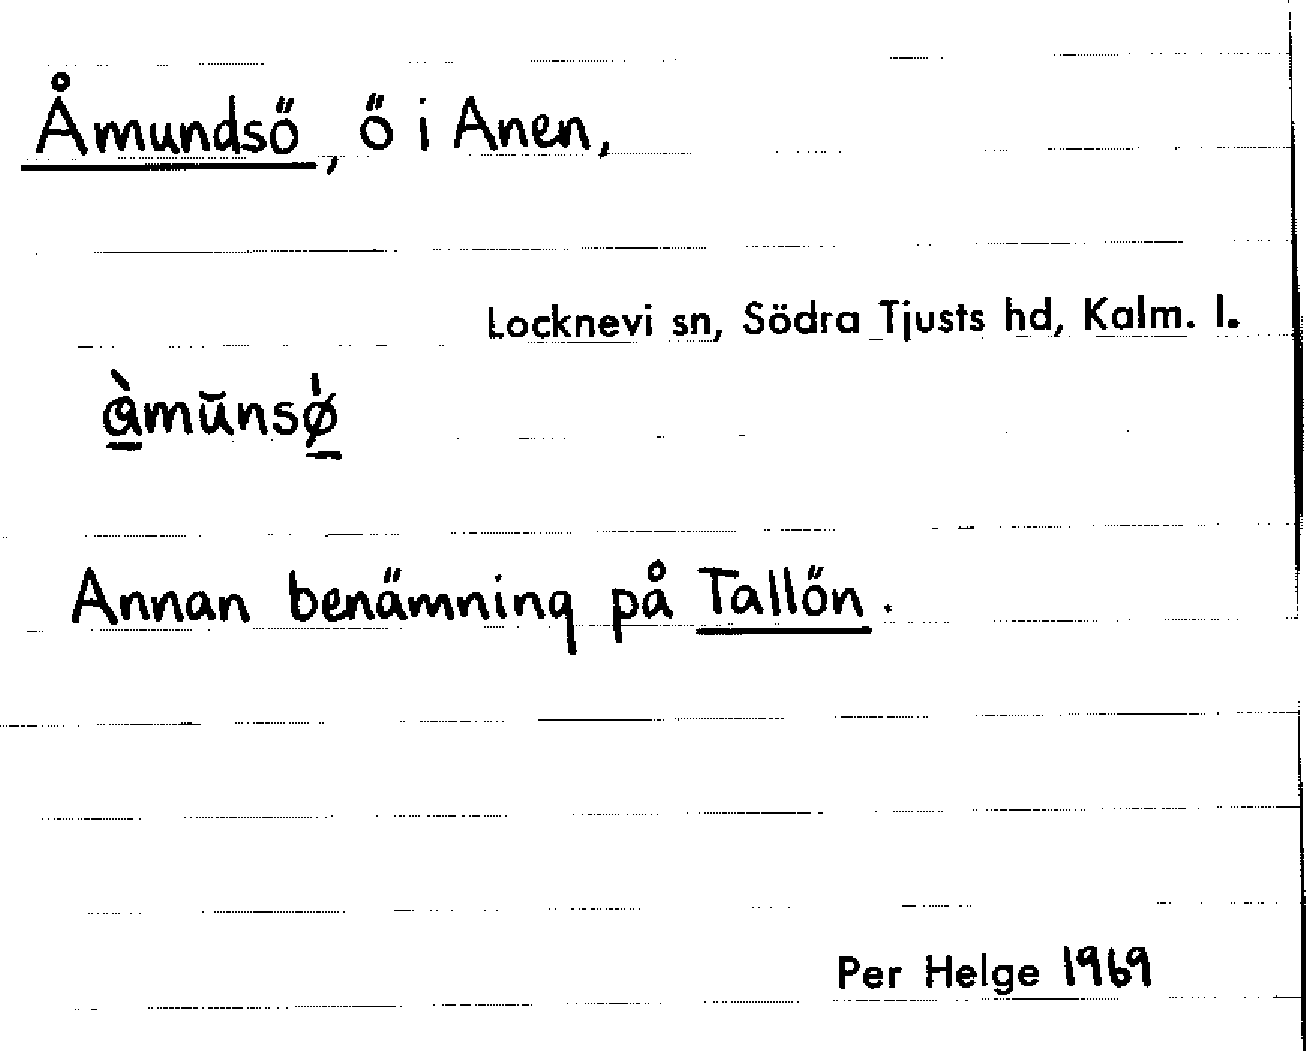 Åmundsö, ö i Anen,
Locknevi sn, Södra Tjusts hd, Kalm. l.
Annan benämning på Tallön.
Per Helge 1969